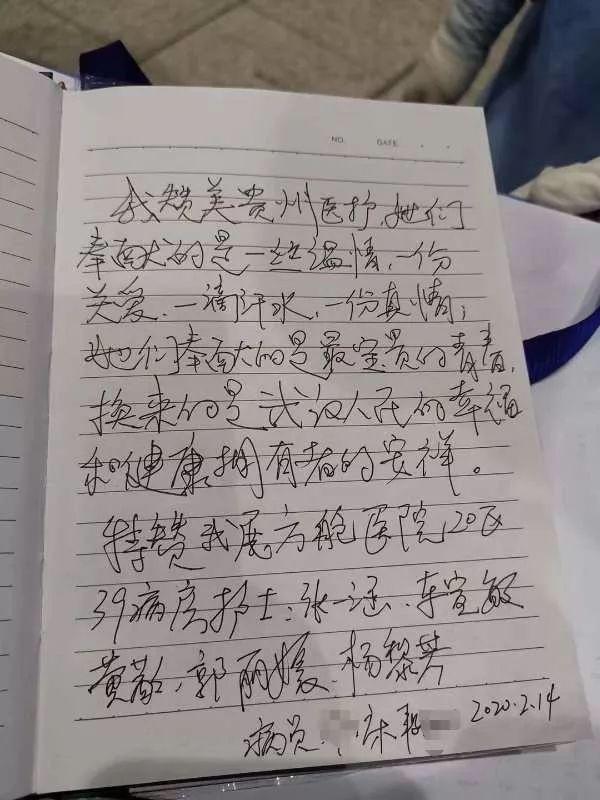 NO. DATE
我赞美贵州医护,她们
奉献的是一丝温情,一份
关爱、一滴汗水,一份真情;
她们奉献的是最宝贵的青春,
换来的是武汉人民的幸福
和健康拥有者的安祥。
特赞我展方舱医院20区
39病房护士:张一涵、车宣敏
黄敏、郭丽媛、杨黎其
病员 宋 2020.2.14